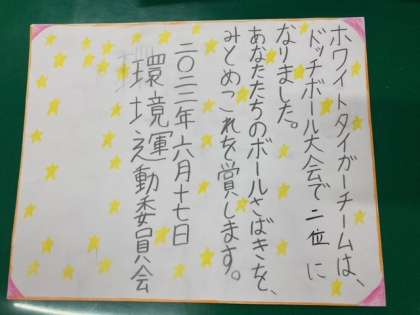 ホワイトタイガーチームは、
ドッチボール大会で二位に
なりました。
あなたたちのボールさばきを、
みとめこれを賞します。
二〇二二年六月十七日
環境運動委員会